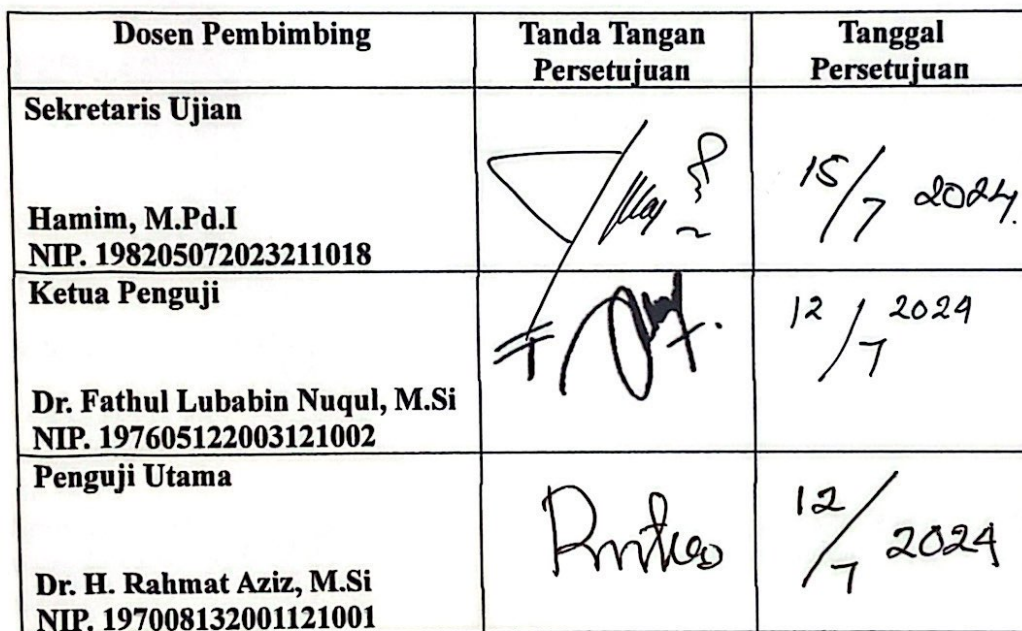 Dosen Pembimbing
Tanda Tangan
Persetujuan
Tanggal
Persetujuan
Sekretaris Ujian
Hamim, M.Pd.I
NIP. 198205072023211018
15/7 2024.
Ketua Penguji
Dr. Fathul Lubabin Nuqul, M.Si
NIP. 197605122003121002
12/7 2024
Penguji Utama
Dr. H. Rahmat Aziz, M.Si
NIP. 197008132001121001
12/7 2024